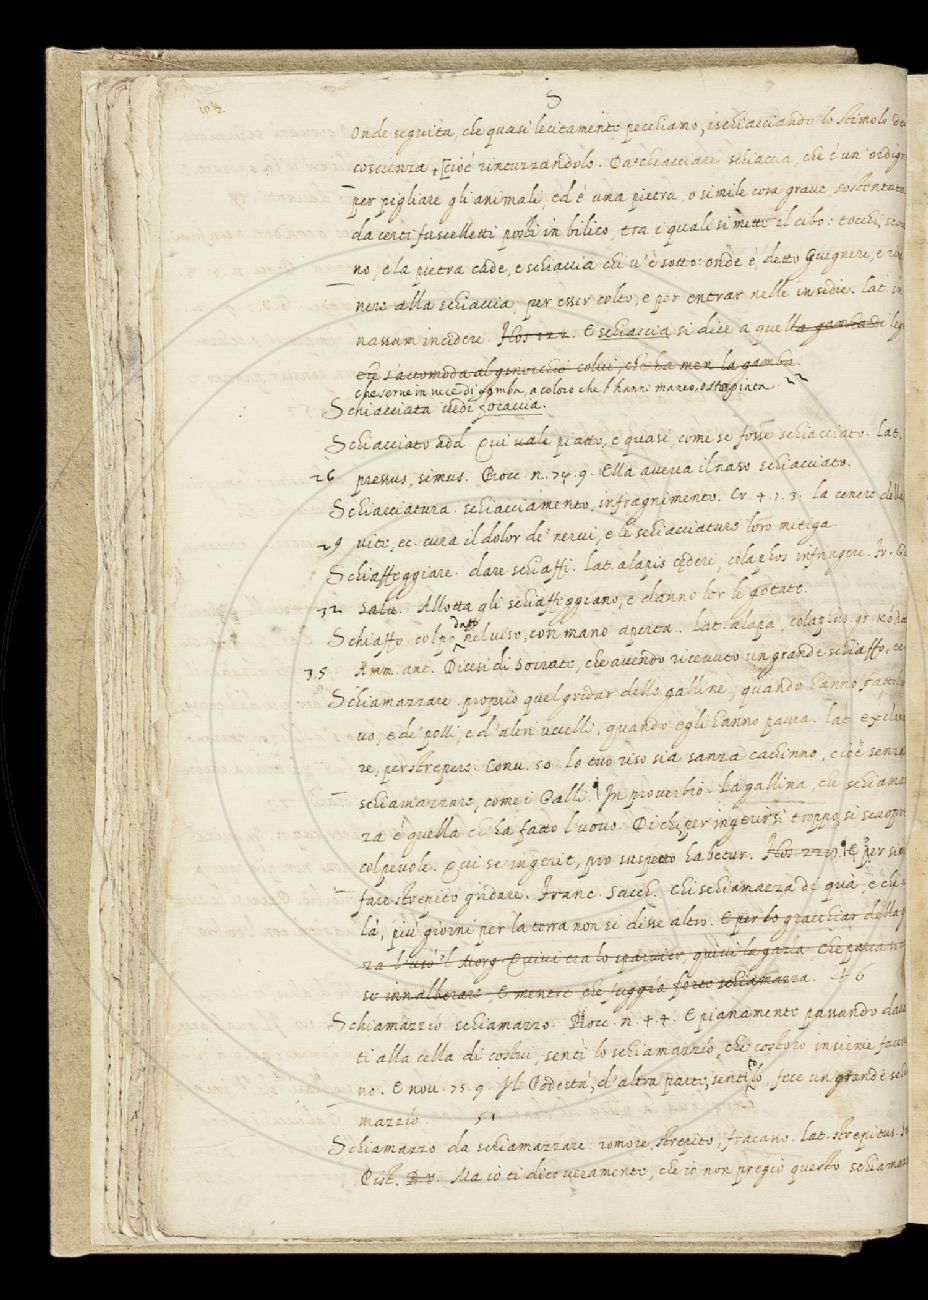 S
Onde seguita, che quasi lecitamente pecchiamo, ischiacciando lo stimolo de
coscienza, cioè rintuzzandolo. Da schiacciare schiaccia, che è un'ordign
per pigliare gli animali, ed è una pietra, o simile cosa graue sostentata
da certi fuscelletti posti in bilico, tra i quali si mette il cibo: tocchi,
no, e la pietra cade, e schiaccia chi u'è sotto: onde è detto Guignere, e ri
nere alla schiaccia, per esser colto, e per entrar nelle insidie. Lat. in
nassam incidere. Flos 122. E schiaccia si dice a quella gamba di leg
che s'accomoda al ginocchio colui, che ha men la gamba.
che serue in uece di gamba, a coloro che l'hanno manco, o storpiata. 22
Schiacciata uedi focaccia.
Schiacciato add. Qui uale piatto, e quasi, come se fosse schiacciato. Lat.
26 pressus, simus. Bocc. n. 74. 9. Ella aueua il naso schiacciato.
Schiacciatura. schiacciamento, infragnimento. Cr. 4. 1. 3. La cenere della
29 uite, ec. cura il dolor de' nerui, e le schiacciature loro mitiga.
Schiaffeggiare. dare schiaffi. Lat. alapis cędere, colaphos infringere. Fr.
32 Salu. Allotta gli schiaffeggiano, e danno lor le gotate.
Schiaffo. colpo dato nel uiso, con mano aperta. Lat. alapa, colaphus. gr.
35 Amm. ant. Dicesi di Socrate, che auendo riceuuto un grande schiaffo, ec
Schiamazzare. propio quel gridar delle galline, quando hanno fatto
uo, e de' polli, e d'altri uccelli, quando egli hanno paura. Lat. exclama
re, perstrepere. Conu. 50. Lo tuo riso sia sanza cachinno, cioè senza
schiamazzare, come i Galli. In prouerbio. La gallina, che schiama
za è quella che ha fatto l'uouo. Di chi per ingerirsi troppo si scuopre
colpeuole. Qui se ingerit, pro suspecto habetur. Flos 229. E per sim
fare strepito gridare. Franc. Sacch. Chi schiamazza di quà, e chi
là, più giorni per la terra non si disse altro. E per lo gracchiar della
za l'usò 'l Morg. Quiui era lo sparuier, quiui la gazza Che parea
se innalberare E mentre che fuggia forte schiamazza. 46
Schiamazzío schiamazzo. Bocc. n. 44. E pianamente passando dauan
ti alla cella di costui, sentì lo schiamazzío, che costoro insieme facea
no. E nou. 75. 9. Il Podestà, d'altra parte, sentitolo, fece un grande schia
mazzío 51
Schiamazzo da schiamazzare. romore, strepito, fracasso. Lat. strepitus.
Pist. Ma io ti dico ueramente, che io non pregio questo schiamaz